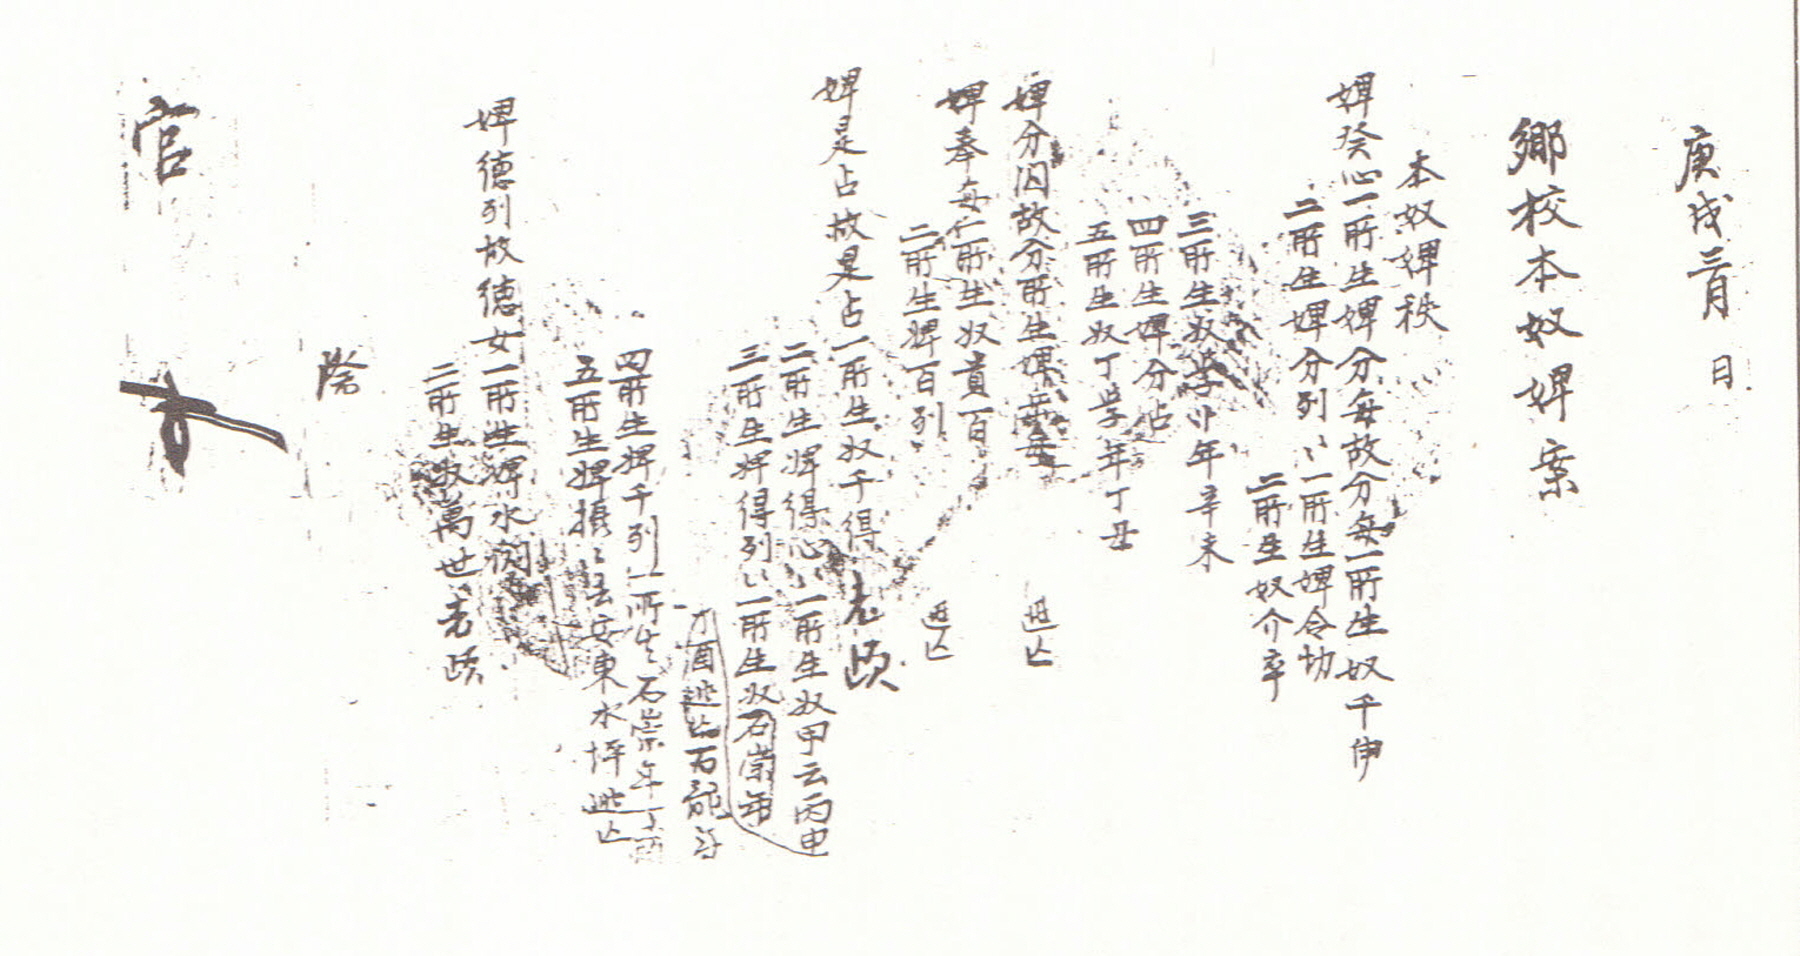 庚戌三月 日
鄕校本奴婢案
本奴婢秩
婢癸心一所生婢分每故分每一所生奴千申
二所生婢分列〻一所生婢令切
二所生奴介卒
三所生奴 年辛未
四所生婢分占
五所生奴丁学年丁丑
婢分囚故分所生婢每 逃亡
婢奉每仁一所生奴貴百
二所生婢百列 逃亡
婢是占故是占一所生奴千得老頉
二所生婢得心〻一所生奴甲云丙申
三所生婢得列〻一所生奴石崇年
酉逃亡石龍
四所生婢千列一所生石崇年丁酉
五所生婢〻去安東水坪逃亡
婢德列故德女一所生婢水
二所生奴萬世老頉
際
官